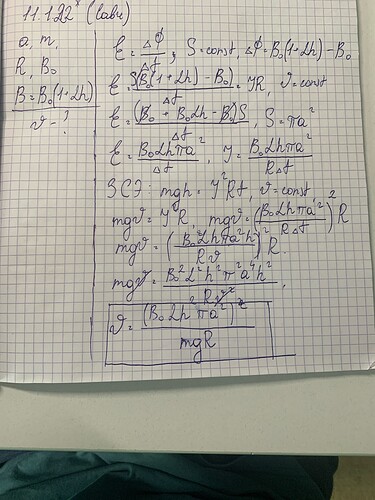 11.1.22* (Савч)
a, m,
R, B₀
B = B₀(1+αh)
v - ?
ℰ = ΔΦ/Δt, S = const, ΔΦ = B₀(1+αh) - B₀
ℰ = S(B₀(1+αh) - B₀)/Δt = IR, v = const
ℰ = (B₀ + B₀αh - B₀)S/Δt, S = πa²
ℰ = B₀αhπa²/Δt, I = B₀αhπa²/RΔt
ЗСЭ: mgh = I²Rt, v = const
mgv = I²R, mgv = (B₀αhπa²/RΔt)² R
mgv = (B₀αhπa²h/Rv)² R
mgv = B₀²α²h²π²a⁴h²/Rv²,
v = (B₀αhπa²)²/mgR